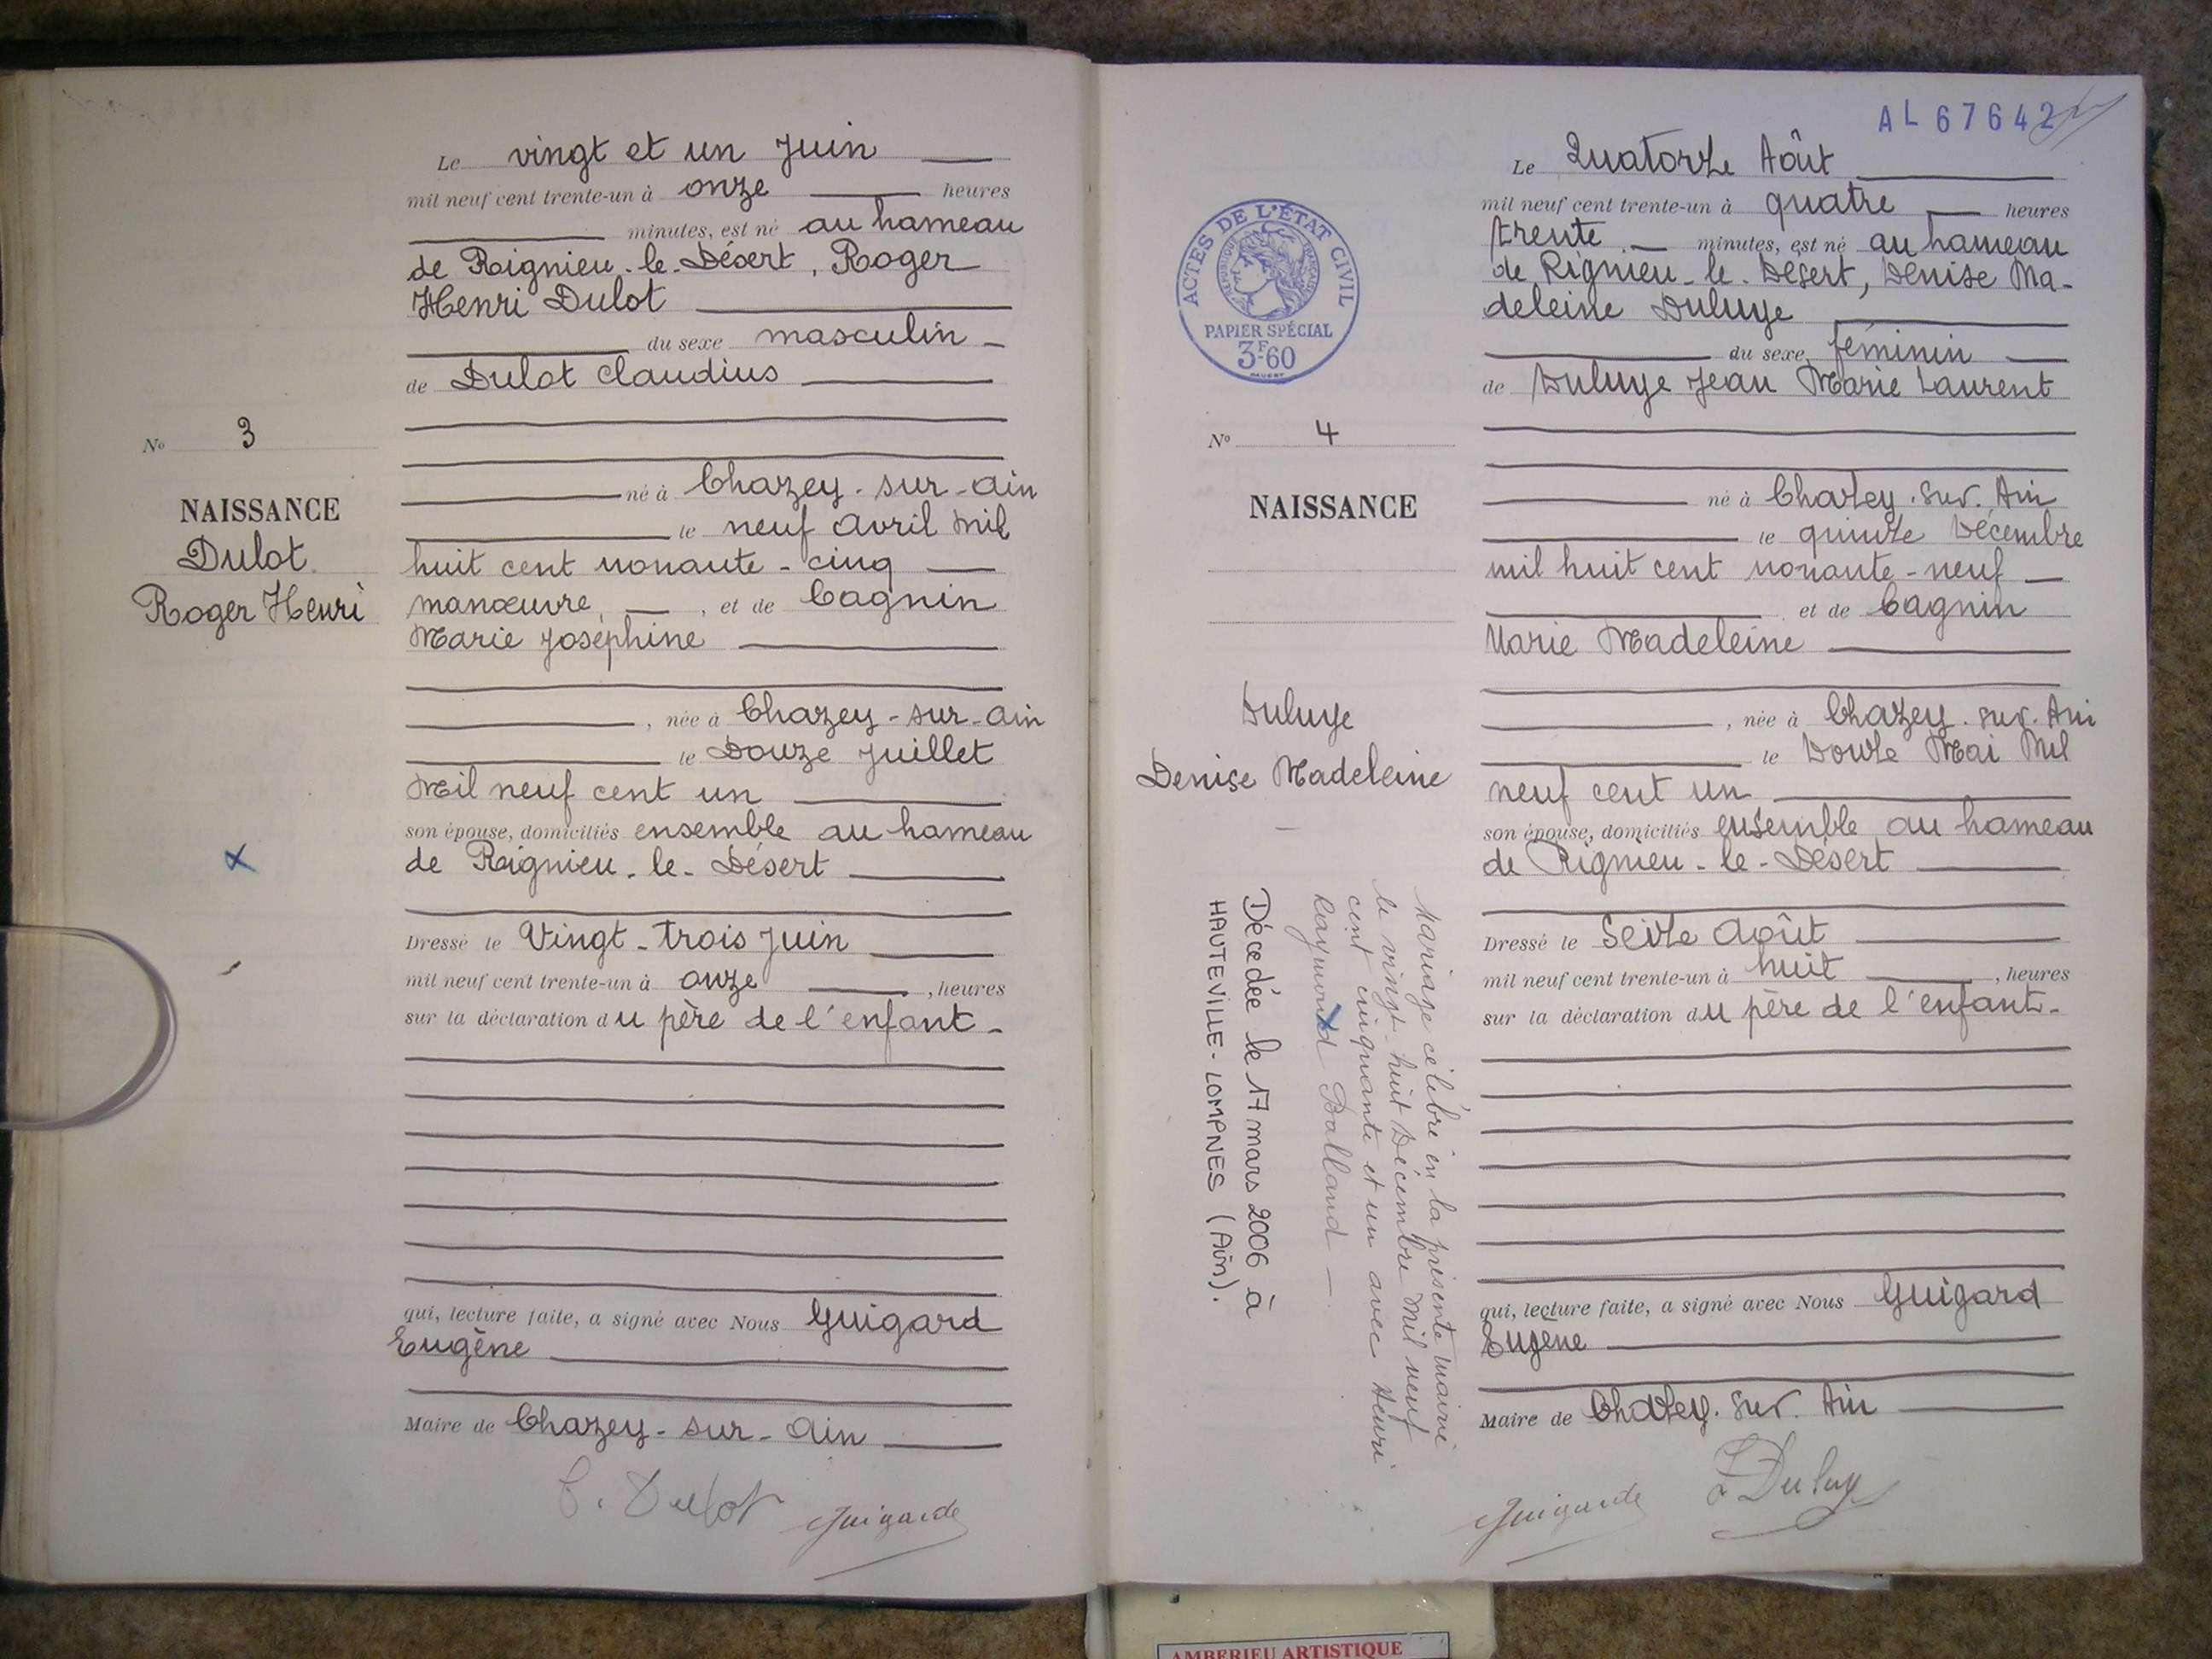 Le vingt et un Juin
mil neuf cent trente-un à onze heures
minutes, est né au hameau
de Rignieu-le-Désert, Roger
Henri Dulot
du sexe masculin
de Dulot Claudius
né à Chazey-sur-Ain
le neuf avril mil
huit cent nonante-cinq
manœuvre, et de Cagnin
Marie Joséphine
, née à Chazey-sur-Ain
le Douze Juillet
Mil neuf cent un
son épouse, domiciliés ensemble au hameau
de Rignieu-le-Désert
Dressé le Vingt-trois Juin
mil neuf cent trente-un à onze, heures
sur la déclaration du père de l'enfant
qui, lecture faite, a signé avec Nous Guigard
Eugène
Maire de Chazey-sur-Ain
C. Dulot Guigard
No 3
NAISSANCE
Dulot
Roger Henri
AL 67642
Le Quatorze Aôut
mil neuf cent trente-un à quatre heures
trente minutes, est né au hameau
de Rignieu-le-Désert, Denise Ma-
deleine Duluye
du sexe féminin
de Duluye Jean Marie Laurent
né à Chazey-sur-Ain
le quinze Décembre
mil huit cent nonante-neuf
et de Cagnin
Marie Madeleine
, née à Chazey-sur-Ain
le Douze Mai Mil
neuf cent un
son épouse, domiciliés ensemble au hameau
de Rignieu-le-Désert
Dressé le Seize Août
mil neuf cent trente-un à huit, heures
sur la déclaration du père de l'enfant
qui, lecture faite, a signé avec Nous Guigard
Eugène
Maire de Chazey-sur-Ain
Guigard Duluy
ACTES DE L'ÉTAT CIVIL
RÉPUBLIQUE FRANÇAISE
PAPIER SPÉCIAL
3F60
No 4
NAISSANCE
Duluye
Denise Madeleine
Mariage célébré en la présente mairie
le vingt-huit Décembre Mil neuf
cent cinquante et un avec Henri
Raymond Balland
Décédée le 17 mars 2006 à
HAUTEVILLE-LOMPNES (Ain).
AMBERIEU ARTISTIQUE